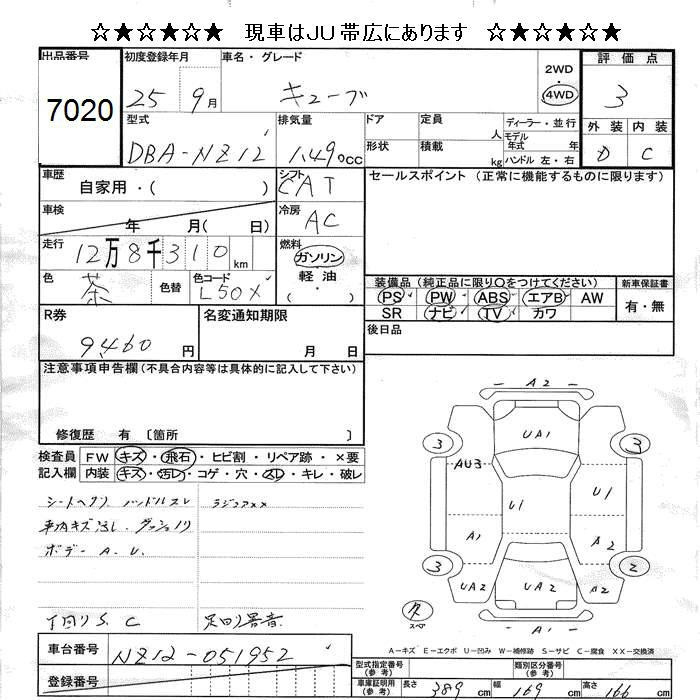 ☆★☆★☆★ 現車はJU帯広にあります ☆★☆★☆★
出品番号 初度登録年月 車名・グレード 2WD 評価点
7020 25 9月 キューブ 4WD 3
型式 排気量 ドア 定員 人 ディーラー・並行 外装 内装
DBA-NZ12 1.49 0cc 形状 積載 kg モデル年式 年 D C
ハンドル 左・右
車歴 自家用・( ) シフト CAT セールスポイント (正常に機能するものに限ります)
車検 年 月( 日) 冷房 AC
走行 12万8千310km 燃料 ガソリン
色 茶 色替 色コード L50X 軽油 ・( )
装備品 (純正品に限り○をつけてください) 新車保証書
PS PW ABS エアB AW 有・無
SR ナビ TV カワ
R券 9,460円 名変通知期限 月 日 後日品
注意事項申告欄 (不具合内容等は具体的に記入して下さい)
修復歴 有 〔箇所 〕
検査員 FW キズ・飛石・ヒビ割・リペア跡・×要
記入欄 内装 キズ・汚レ・コゲ・穴・スレ・キレ・破レ
シートヘタリ ハンドルスレ ラジコアXX
車内キズ汚レ ダッシュノリ
ボデー A.U.
下回りS.C 足回り異音
A2
UA1
3 3
AU3
U1 U1
A1 A2
3 2
UA2 UA2 A2
スペア
A1
A-キズ E-エクボ U-凹み W-補修跡 S-サビ C-腐食 XX-交換済
車台番号 NZ12-051952
登録番号
型式指定番号(参考) 類別区分番号(参考)
車庫証明用(参考) 長さ 389cm 幅 169cm 高さ 166cm